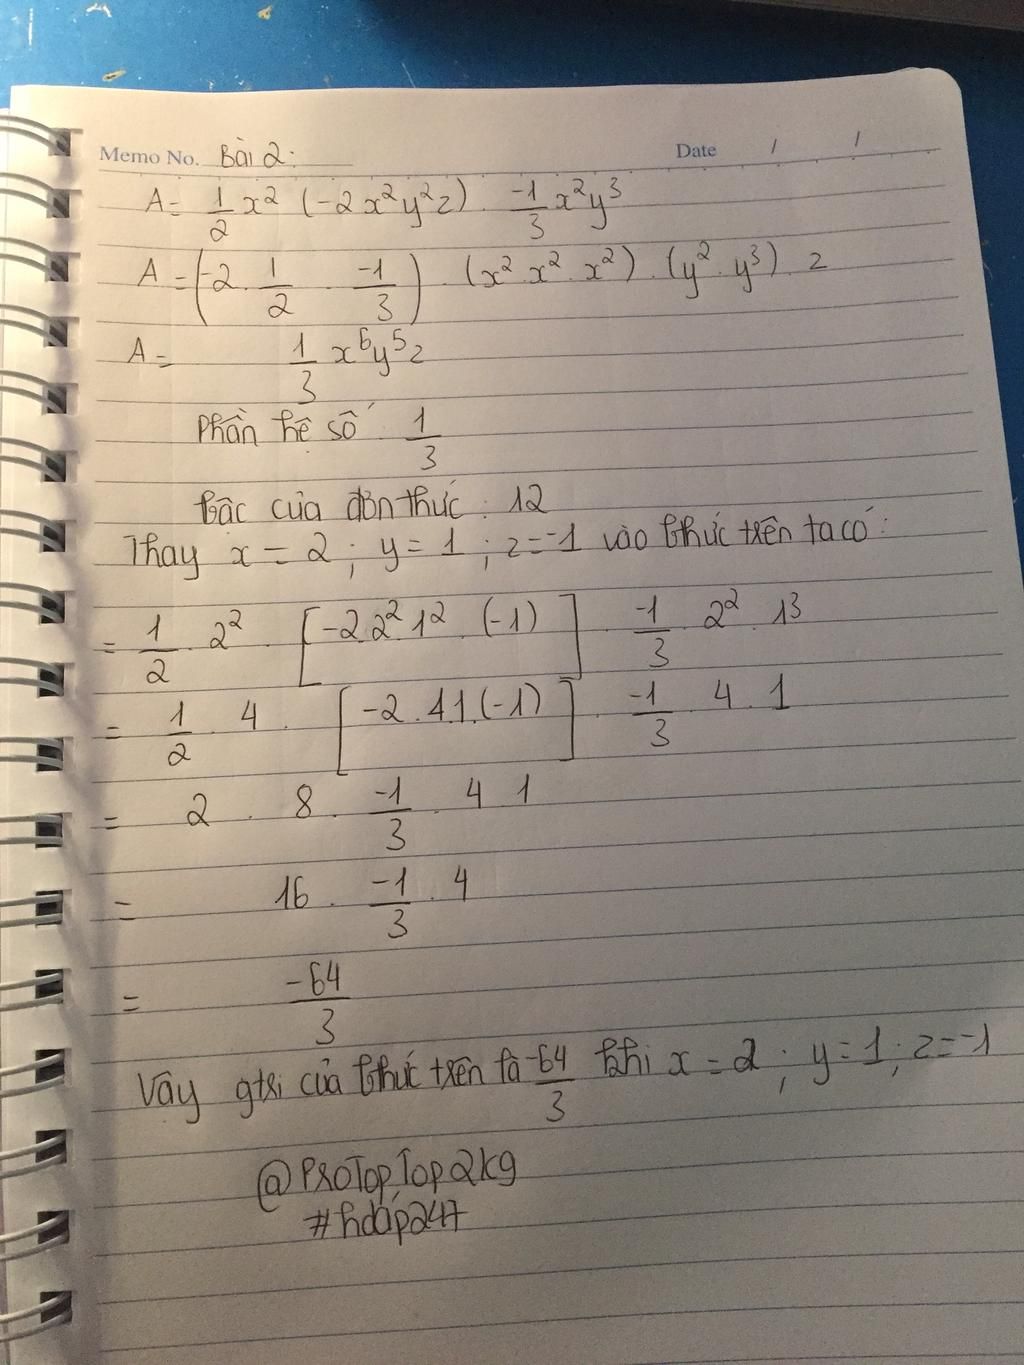 Memo No. Bài 2: Date / /
A = 1/2 x² (-2x²y²z) . -1/3 x²y³
A = (-2 . 1/2 . -1/3) . (x² . x² . x²) . (y² . y³) . z
A = 1/3 x⁶y⁵z
Phần hệ số 1/3
bậc của đơn thức : 12
Thay x = 2 ; y = 1 ; z = -1 vào bthức trên ta có :
= 1/2 . 2² . [-2.2².1² . (-1)] . -1/3 . 2² . 1³
= 1/2 . 4 . [-2 . 4.1.(-1)] . -1/3 . 4 . 1
= 2 . 8 . -1/3 . 4 1
= 16 . -1/3 . 4
= -64/3
Vậy gtrị của bthức trên là -64/3 khi x = 2 ; y = 1 ; z = -1
@ProTopTop2kg
#hdáp247